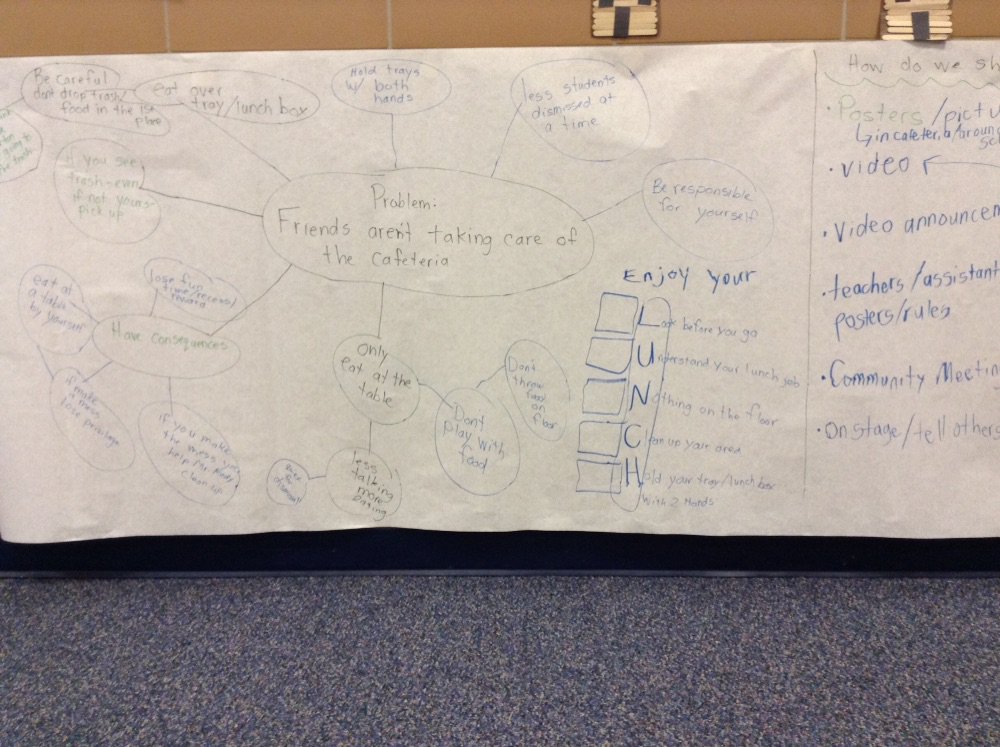 Be careful
don't drop trash/
food in the 1st
place
eat over
tray/lunch box
Hold trays
w/ both
hands
less students
dismissed at
a time
If you see
trash-even
if not yours-
pick up
Problem:
Friends aren't taking care of
the cafeteria
Be responsible
for yourself
lose fun
time/recess/
eat at
a table
by yourself
Have consequences
if make
a mess
lose privilege
if you make
the mess, you
help
clean up
Only
eat at the
table
Don't
play with
food
Don't
throw
food on
floor
less
talking
more
eating
Enjoy your
Look before you go
Understand your lunch job
Nothing on the floor
Clean up your area
Hold your tray/lunch box
with 2 Hands
How do we sh
• Posters/pictu
in cafeteria/aroun
sc
• video
• Video announcem
• teachers/assistant
posters/rules
• Community Meetin
• On stage/tell others